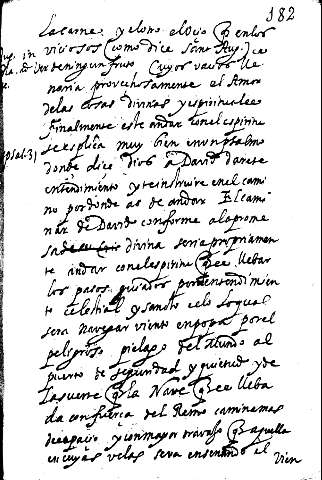 182
la carne. y el otro el Ojo Q en los
viciosos (como dice Sant Aug.) ca
ver de ningun fruto Cuyos vasos lle
naria provechosamente el Amor
de las cosas divinas y espirituales
Finalmente este andar con el espiritu
se explica muy bien en un psalmo
psal. 31
donde dice dios a David darete
entendimiento y te instruire en el cami
no por donde as de andar El cami
nar de David conforme a la prome
sa divina seria propriamen
te andar con el espiritu Que llebar
los pasos guiados por entendimien
to celestial y sancto celo lo qual
sera navegar viento en popa por el
peligroso pielago del Mundo al
puerto de seguridad y quietud y de
la suerte Q la Nave Que lleba
da con fuerça del Remo caminamas
de espacio y con mayor trabajo Q aquella
en cuyas velas sera ensenando el
vien